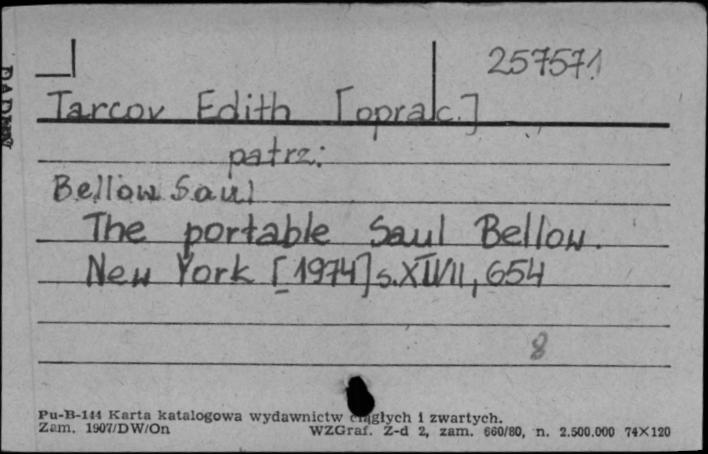 257571
Tarcov Edith [oprac.]
patrz:
Bellow Saul
The portable Saul Bellow.
New York [1974] s. XLVII, 654
8
Pu-B-144 Karta katalogowa wydawnictw ciągłych i zwartych.
Zam. 1907/DW/On WZGraf. Z-d 2, zam. 660/80, n. 2.500.000 74×120